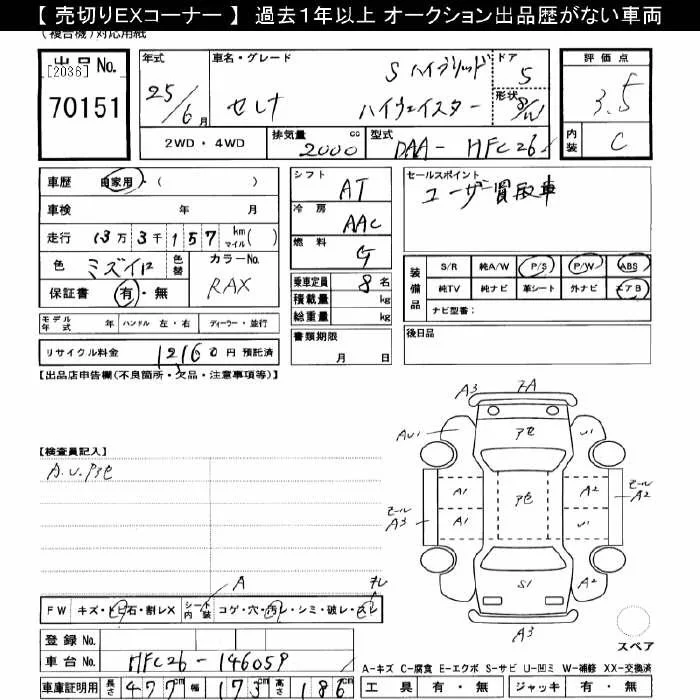 【 売切りEXコーナー 】 過去1年以上 オークション出品歴がない車両
(複合機)対応用紙
出品 No.
[2036]
70151
年式
25/6月
車名・グレード
セレナ
S ハイブリッド
ハイウェイスター
ドア
5
形状
2WD ・ 4WD
排気量
2000 cc
型式
DAA- HFC26
評価点
3.5
内装
C
車歴 自家用・( )
車検 年 月
走行 13万3千157 km マイル( )
色 ミズイロ
色替
カラーNo.
RAX
保証書 有・無
シフト
AT
冷房
AAC
燃料
G
乗車定員 8 名
積載量 kg
総重量 kg
書類期限
月 日
セールスポイント
ユーザー買取車
装備品
S/R 純A/W P/S P/W ABS
純TV 純ナビ 革シート 外ナビ エアB
ナビ型番:
後日品
モデル年式 年 ハンドル 左・右 ディーラー・並行
リサイクル料金 12160 円 預託済
【出品店申告欄(不良箇所・欠品・注意事項等)】
【検査員記入】
A3
AU1
A1
A2
A1
U1
A3
A2
S1
A2
A3
スペア
A
FW キズ・トビ石・割レX シート内装 コゲ・穴・汚レ・シミ・破レ・
登録 No.
車台 No. HFC26-146059
車庫証明用 長さ 477 cm 幅 173 cm 高さ 186 cm
A-キズ C-腐食 E-エクボ S-サビ U-凹ミ W-補修 XX-交換済
工具 有・無 ジャッキ 有・無